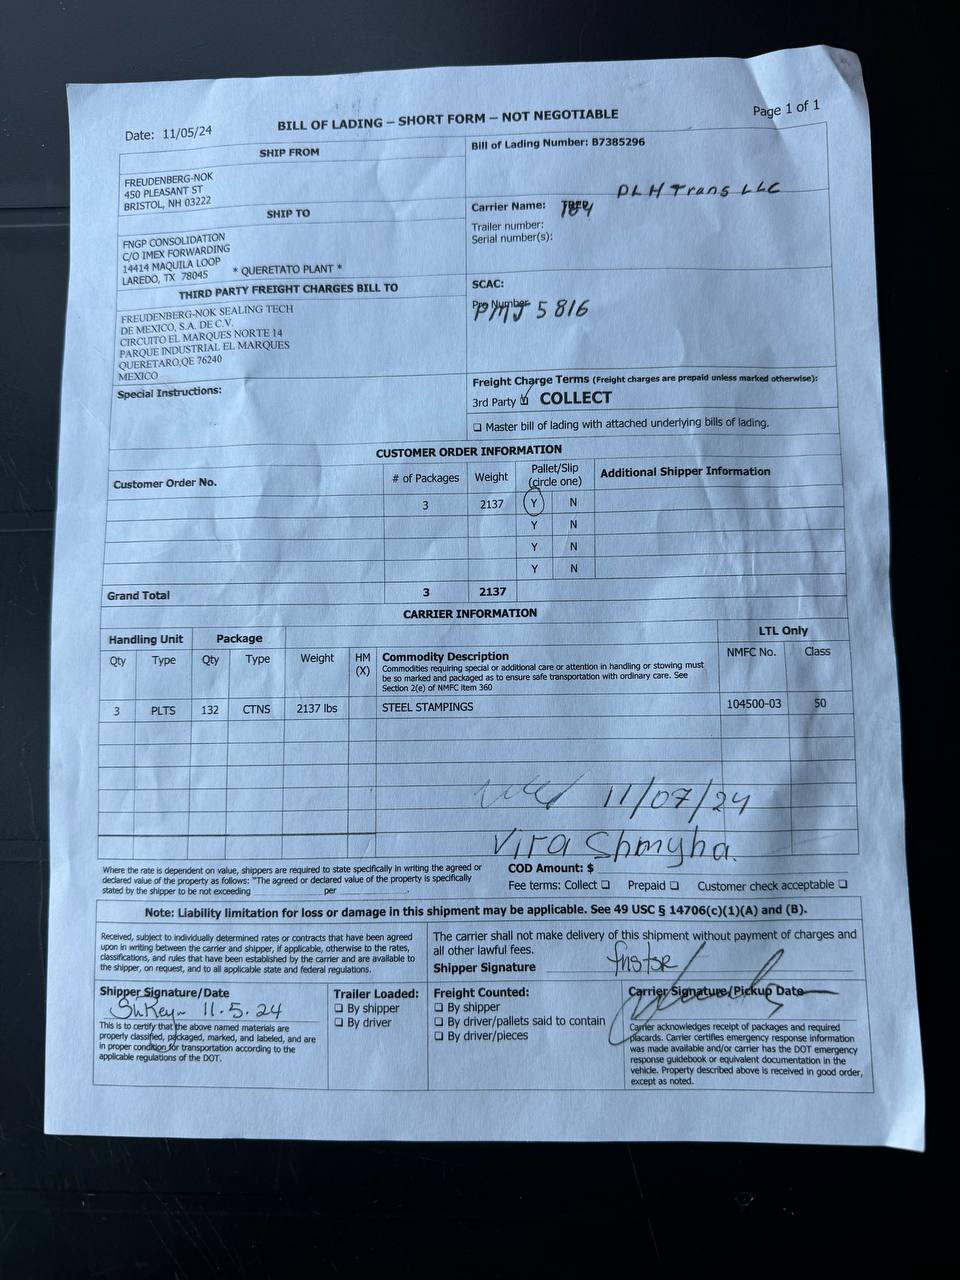 Page 1 of 1
Date: 11/05/24
BILL OF LADING – SHORT FORM – NOT NEGOTIABLE
SHIP FROM
FREUDENBERG-NOK
450 PLEASANT ST
BRISTOL, NH 03222
Bill of Lading Number: B7385296
SHIP TO
FNGP CONSOLIDATION
C/O IMEX FORWARDING
14414 MAQUILA LOOP
LAREDO, TX 78045 * QUERETATO PLANT *
DLH Trans LLC
Carrier Name:
Trailer number:
Serial number(s):
THIRD PARTY FREIGHT CHARGES BILL TO
FREUDENBERG-NOK SEALING TECH
DE MEXICO, S.A. DE C.V.
CIRCUITO EL MARQUES NORTE 14
PARQUE INDUSTRIAL EL MARQUES
QUERETARO,QE 76240
MEXICO
SCAC:
Pro Number
PMJ 5816
Special Instructions:
Freight Charge Terms (Freight charges are prepaid unless marked otherwise):
3rd Party COLLECT
Master bill of lading with attached underlying bills of lading.
CUSTOMER ORDER INFORMATION
Customer Order No. # of Packages Weight Pallet/Slip (circle one) Additional Shipper Information
3 2137 Y N
Y N
Y N
Y N
Grand Total 3 2137
CARRIER INFORMATION
Handling Unit Package LTL Only
Qty Type Qty Type Weight HM (X) Commodity Description NMFC No. Class
Commodities requiring special or additional care or attention in handling or stowing must
be so marked and packaged as to ensure safe transportation with ordinary care. See
Section 2(e) of NMFC item 360
3 PLTS 132 CTNS 2137 lbs STEEL STAMPINGS 104500-03 50
11/07/24
Vira Shmyha
Where the rate is dependent on value, shippers are required to state specifically in writing the agreed or
declared value of the property as follows: "The agreed or declared value of the property is specifically
stated by the shipper to be not exceeding per .
COD Amount: $
Fee terms: Collect Prepaid Customer check acceptable
Note: Liability limitation for loss or damage in this shipment may be applicable. See 49 USC § 14706(c)(1)(A) and (B).
Received, subject to individually determined rates or contracts that have been agreed
upon in writing between the carrier and shipper, if applicable, otherwise to the rates,
classifications, and rules that have been established by the carrier and are available to
the shipper, on request, and to all applicable state and federal regulations.
The carrier shall not make delivery of this shipment without payment of charges and
all other lawful fees.
Shipper Signature
Shipper Signature/Date
11.5.24
This is to certify that the above named materials are
properly classified, packaged, marked, and labeled, and are
in proper condition for transportation according to the
applicable regulations of the DOT.
Trailer Loaded:
By shipper
By driver
Freight Counted:
By shipper
By driver/pallets said to contain
By driver/pieces
Carrier Signature/Pickup Date
Carrier acknowledges receipt of packages and required
placards. Carrier certifies emergency response information
was made available and/or carrier has the DOT emergency
response guidebook or equivalent documentation in the
vehicle. Property described above is received in good order,
except as noted.